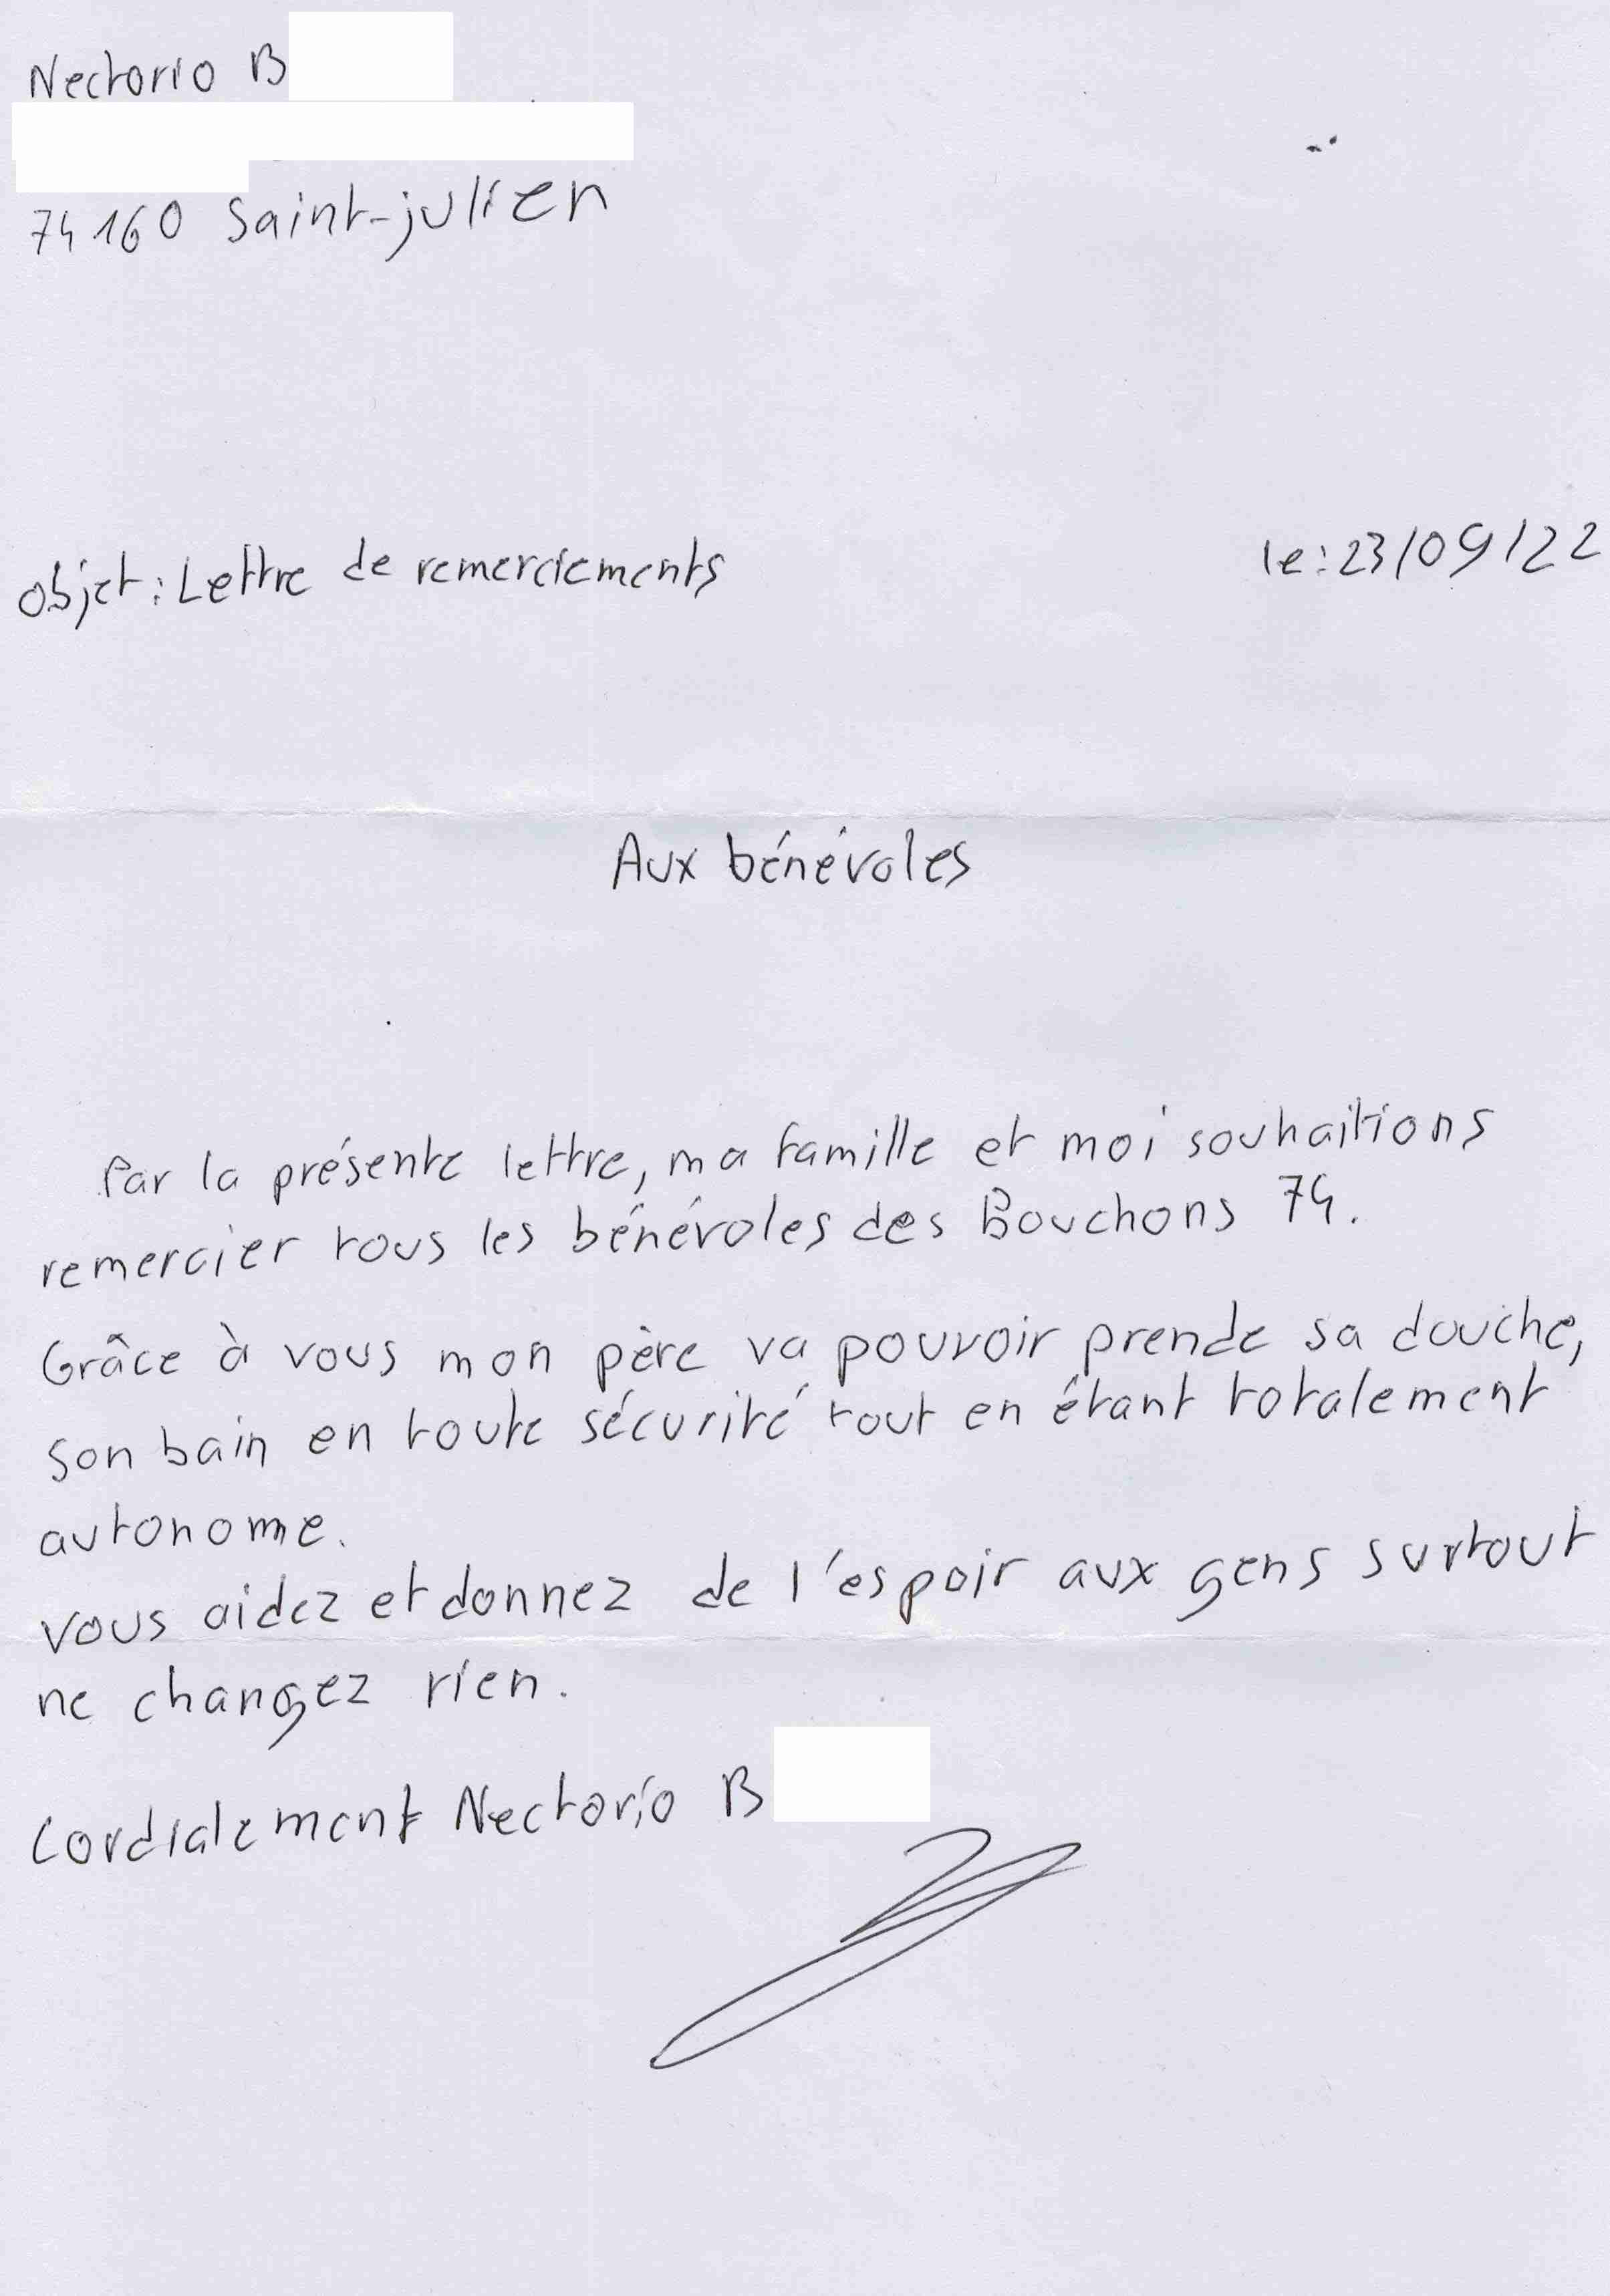 Nectorio B
74160 Saint-julien
objet : Lettre de remerciements
le : 23/09/22
Aux bénévoles
Par la présente lettre, ma famille et moi souhaitions
remercier tous les bénévoles des Bouchons 74.
Grâce à vous mon père va pouvoir prende sa douche,
son bain en toute sécurité tout en étant totalement
autonome.
vous aidez et donnez de l'espoir aux gens surtout
ne changez rien.
Cordialement Nectorio B